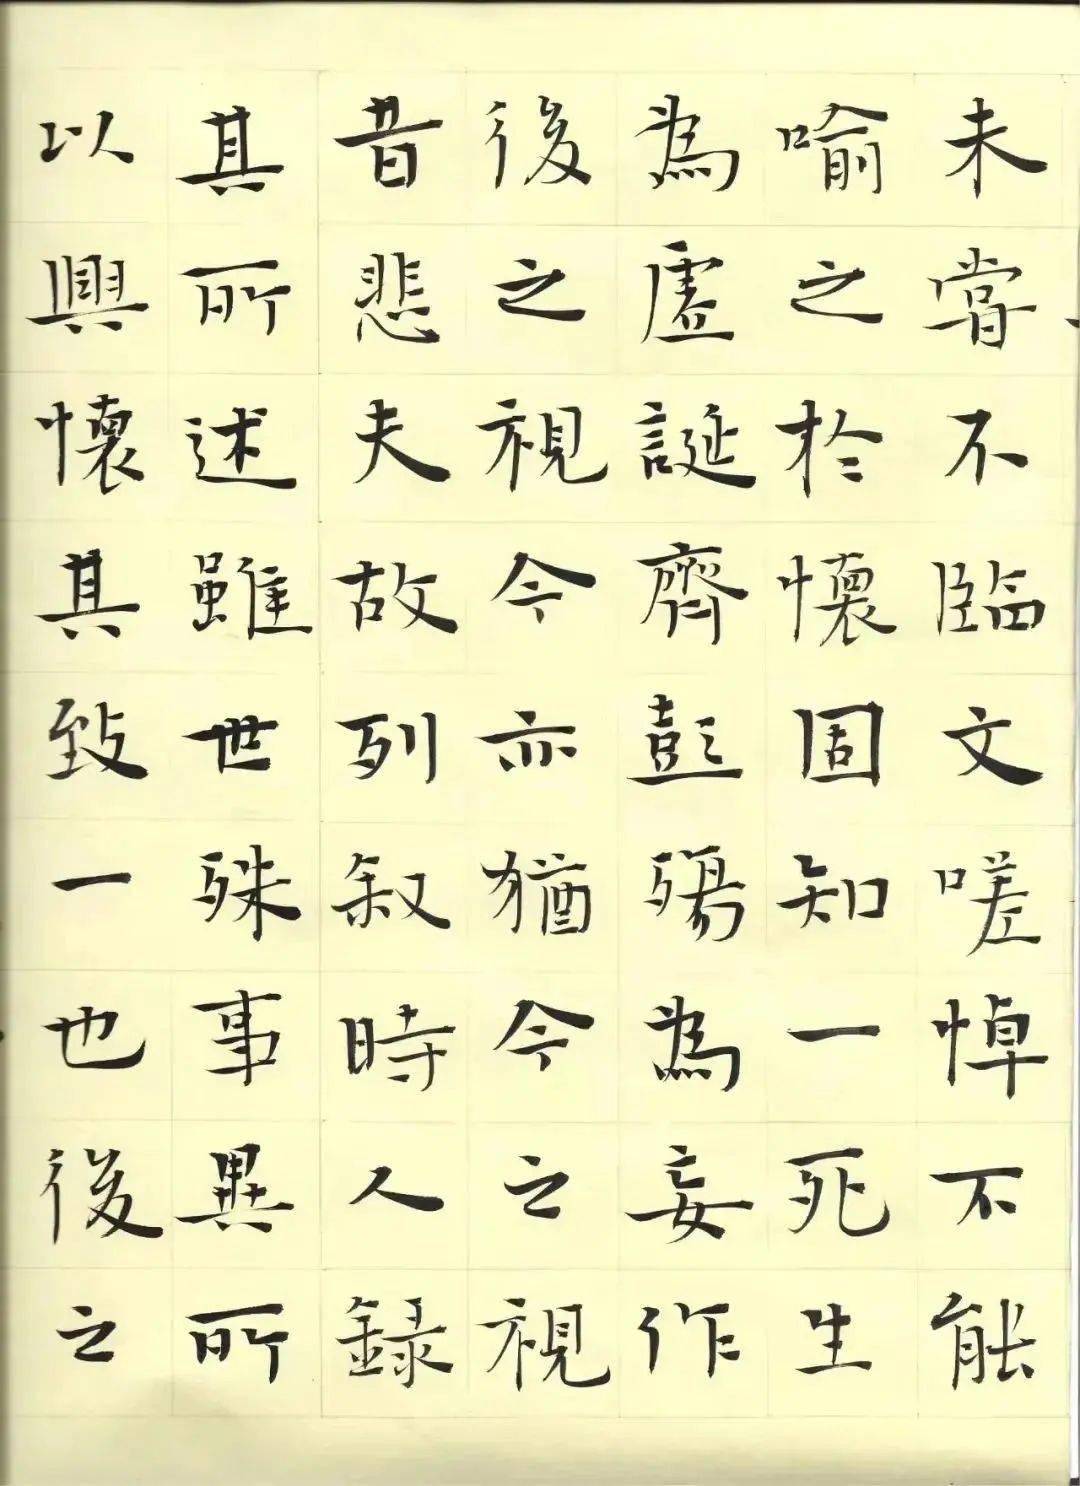 未嘗不臨文嗟悼不能
喻之於懷固知一死生
為虛誕齊彭殤為妄作
後之視今亦猶今之視
昔悲夫故列叙時人錄
其所述雖世殊事異所
以興懷其致一也後之